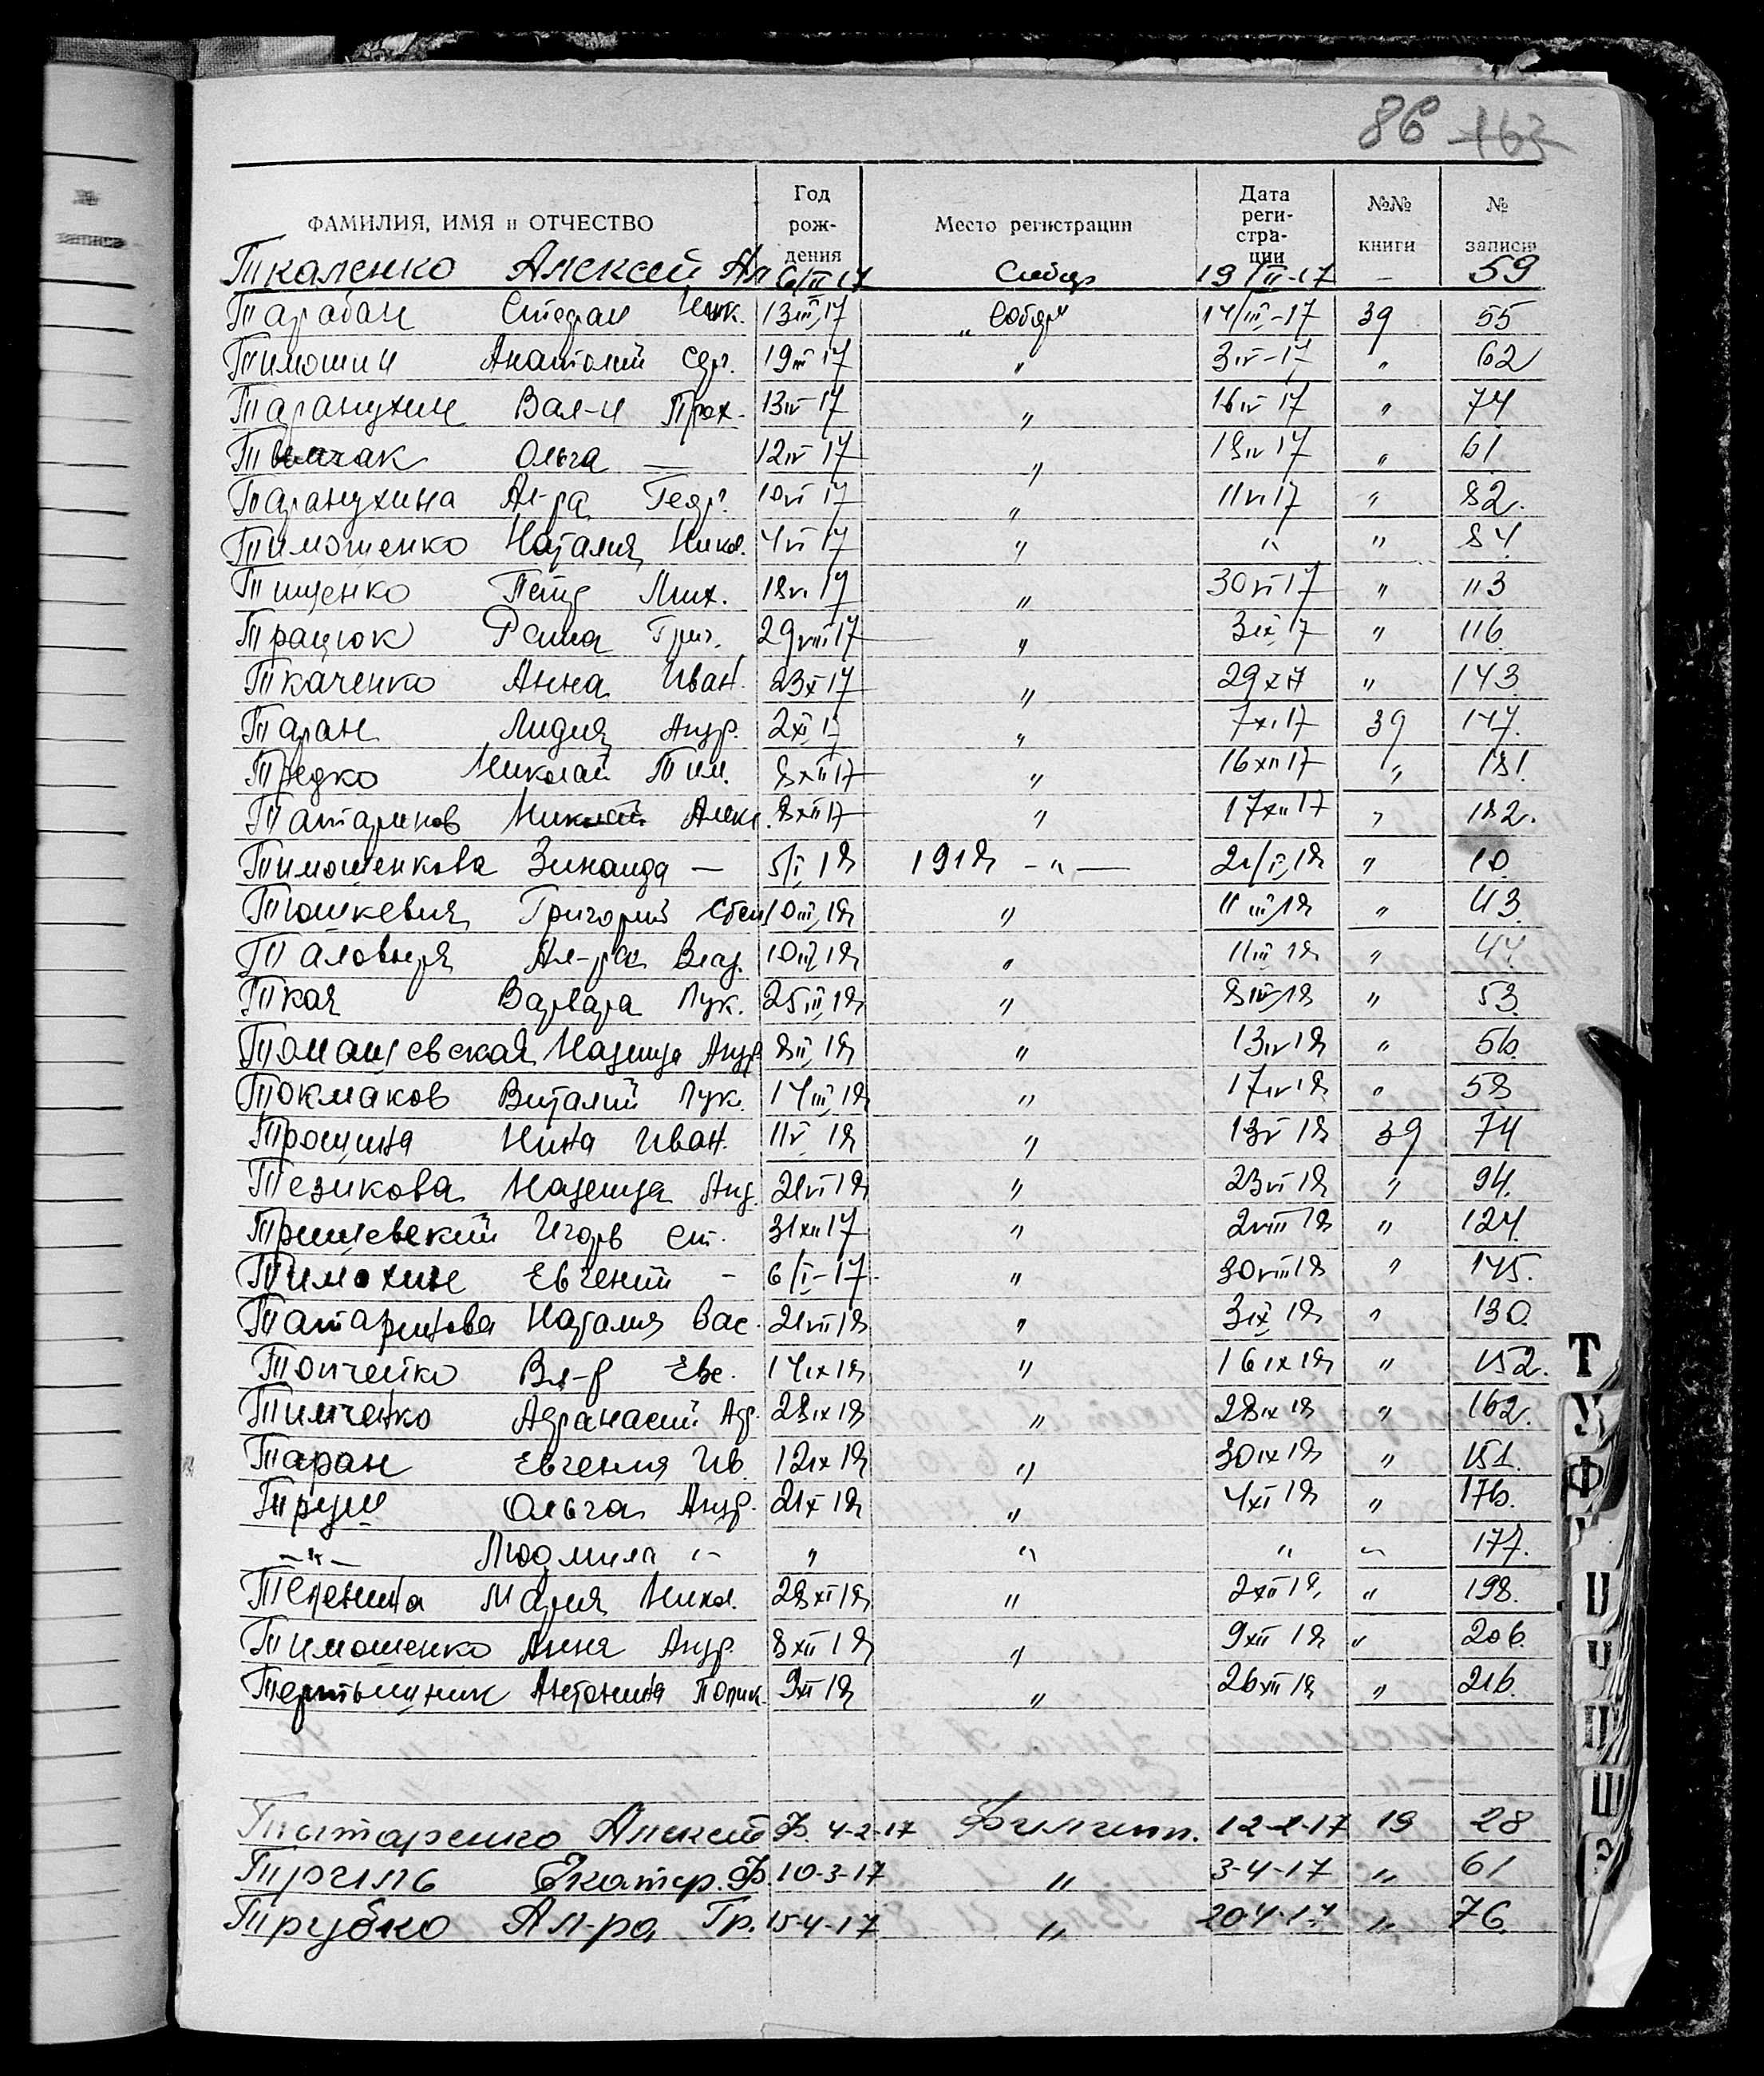 86 163
ФАМИЛИЯ, ИМЯ и ОТЧЕСТВО Год рождения Место регистрации Дата регистрации №№ книги № записи
Ткаленко Алексей Ал 6/II 17 19/II-17 — 59
Тарабан Стефан Ник. 13III17 „ Собор 14/III-17 39 55
Тимошин Анатолий 19III17 „ 3IV-17 „ 62
Таранухин Вал-н Прох. 13IV17 „ 16IV17 „ 74
Ольга — 12IV17 „ 18IV17 „ 61
Таранухина Ал-ра Геор. 10VI17 „ 11VI17 „ 82.
Тимошенко Наталия Никол. 4VI17 „ „ „ 84.
Тищенко Петр Мих. 18VI17 „ 30VI17 „ 113
Трацюк Раиса Григ. 29VIII17 „ 3IX17 „ 116.
Ткаченко Анна Иван. 23X17 „ 29X17 „ 143.
Таран Лидия Андр. 2XI17 „ 7XI17 39 147.
Тредко Николай Тим. 8XII17 „ 16XII17 „ 181.
Татаринов Николай Алек. 8XII17 „ 17XII17 „ 182.
Тимошенкова Зинаида — 5/I,18 1918 -„- 21/I,18 „ 10.
Тошкевич Григорий 10III,18 „ 11III,18 „ 43.
Таловыря Ал-ра Влад. 10III,18 „ 11III18 „ 44.
Ткач Варвара Лук. 25III,18 „ 8IV18 „ 53.
Томашевская Надежда Андр. „ 13IV18 „ 56.
Токмаков Виталий Лук. 14III,18 „ 17IV18 „ 58
Трощина Нина Иван. 11V18 „ 13V18 39 74
Тезикова Надежда Анд. 21VI18 „ 23VI18 „ 94.
Трищевский Игорь Ст. 31XII17 „ 2VIII18 „ 124.
Тимохин Евгений — 6/I-17. „ 30VIII18 „ 145.
Татаринова Наталия Вас. 21VII18 „ 3IX18 „ 130.
Топчейко Вл-р Евг. 14IX18 „ 16IX18 „ 152.
Тимченко Афанасий 28IX18 „ 28IX18 „ 162.
Таран Евгения Ив. 12IX18 „ 30IX18 „ 151.
Трущ Ольга Андр. 21X18 „ 4XI18 „ 176.
-„- Людмила „ „ „ „ „ 177.
Тепенина Мария Никол. 28XI18 „ 2XII18. „ 198.
Тимошенко Анна Андр. 8XII18 „ 9XII18 „ 206.
Тертышник Антонина „ 26XII18 „ 216.
Татаренко Алексей Ф. 4-2-17 Филипп. 12-2-17 19 28
Тргиль Екатер. Ф. 10-3-17 „ 3-4-17 „ 61
Трубко Ал-ра Гр. 15-4-17 „ 20 4-17 „ 76.
Т
У
Ф
Ш